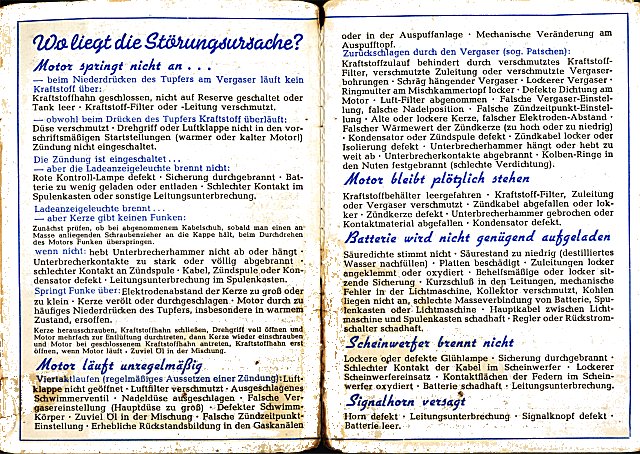 Wo liegt die Störungsursache?
Motor springt nicht an . . .
— beim Niederdrücken des Tupfers am Vergaser läuft kein
Kraftstoff über:
Kraftstoffhahn geschlossen, nicht auf Reserve geschaltet oder
Tank leer · Kraftstoff-Filter oder -Leitung verschmutzt.
— obwohl beim Drücken des Tupfers Kraftstoff überläuft:
Düse verschmutzt · Drehgriff oder Luftklappe nicht in den vor-
schriftsmäßigen Startstellungen (warmer oder kalter Motor)
Zündung nicht eingeschaltet.
Die Zündung ist eingeschaltet . . .
— aber die Ladeanzeigeleuchte brennt nicht:
Rote Kontroll-Lampe defekt · Sicherung durchgebrannt · Bat-
terie zu wenig geladen oder entladen · Schlechter Kontakt im
Spulenkasten oder sonstige Leitungsunterbrechung.
Ladeanzeigeleuchte brennt . . .
— aber Kerze gibt keinen Funken:
Zunächst prüfen, ob bei abgenommenem Kabelschuh, sobald man einen an
Masse anliegenden Schraubenzieher an die Kappe hält, beim Durchdrehen
des Motors Funken überspringen.
wenn nicht: hebt Unterbrecherhammer nicht ab oder hängt ·
Unterbrecherkontakte zu stark oder völlig abgebrannt ·
schlechter Kontakt an Zündspule · Kabel, Zündspule oder Kon-
densator defekt · Leitungsunterbrechung im Spulenkasten.
Springt Funke über: Elektrodenabstand der Kerze zu groß oder
zu klein · Kerze verölt oder durchgeschlagen · Motor durch zu
häufiges Niederdrücken des Tupfers, insbesondere in warmem
Zustand, ersoffen.
Kerze herausschrauben, Kraftstoffhahn schließen, Drehgriff voll öffnen und
Motor mehrfach zur Entlüftung durchtreten, dann Kerze wieder einschrauben
und Motor bei geschlossenem Kraftstoffhahn antreten, Kraftstoffhahn erst
öffnen, wenn Motor läuft · Zuviel Öl in der Mischung.
Motor läuft unregelmäßig
Viertaktlaufen (regelmäßiges Aussetzen einer Zündung): Luft-
klappe nicht geöffnet · Luftfilter verschmutzt · Ausgeschlagenes
Schwimmerventil · Nadeldüse ausgeschlagen · Falsche Ver-
gasereinstellung (Hauptdüse zu groß) · Defekter Schwimm-
Körper · Zuviel Öl in der Mischung · Falsche Zündzeitpunkt-
Einstellung · Erhebliche Rückstandsbildung in den Gaskanälen
oder in der Auspuffanlage · Mechanische Veränderung am
Auspufftopf.
Zurückschlagen durch den Vergaser (sog. Patschen):
Kraftstoffzulauf behindert durch verschmutztes Kraftstoff-
Filter, verschmutzte Zuleitung oder verschmutzte Vergaser-
bohrungen · Schräg hängender Vergaser · Lockerer Vergaser ·
Ringmutter am Mischkammertopf locker · Defekte Dichtung am
Motor · Luft-Filter abgenommen · Falsche Vergaser-Einstel-
lung, falsche Nadelposition · Falsche Zündzeitpunkt-Einstel-
lung · Alte oder lockere Kerze, falscher Elektroden-Abstand ·
Falscher Wärmewert der Zündkerze (zu hoch oder zu niedrig)
· Kondensator oder Zündspule defekt · Zündkabel locker oder
Isolierung defekt · Unterbrecherhammer hängt oder hebt zu
weit ab · Unterbrecherkontakte abgebrannt · Kolben-Ringe in
den Nuten festgebrannt (schlechte Verdichtung).
Motor bleibt plötzlich stehen
Kraftstoffbehälter leergefahren · Kraftstoff-Filter, Zuleitung
oder Vergaser verschmutzt · Zündkabel abgefallen oder lok-
ker · Zündkerze defekt · Unterbrecherhammer gebrochen oder
Kontaktmaterial abgefallen · Kondensator defekt.
Batterie wird nicht genügend aufgeladen
Säuredichte stimmt nicht · Säurestand zu niedrig (destilliertes
Wasser nachfüllen) · Platten beschädigt · Zuleitungen locker
angeklemmt oder oxydiert · Behelfsmäßige oder locker sit-
zende Sicherung · Kurzschluß in den Leitungen, mechanische
Fehler in der Lichtmaschine, Kollektor verschmutzt, Kohlen
liegen nicht an, schlechte Masseverbindung von Batterie, Spu-
lenkasten oder Lichtmaschine · Hauptkabel zwischen Licht-
maschine und Spulenkasten schadhaft · Regler oder Rückstrom-
schalter schadhaft.
Scheinwerfer brennt nicht
Lockere oder defekte Glühlampe · Sicherung durchgebrannt ·
Schlechter Kontakt der Kabel im Scheinwerfer · Lockerer
Scheinwerfereinsatz · Kontaktflächen der Federn im Schein-
werfer oxydiert · Batterie schadhaft · Leitungsunterbrechung.
Signalhorn versagt
Horn defekt · Leitungsunterbrechung · Signalknopf defekt ·
Batterie leer.